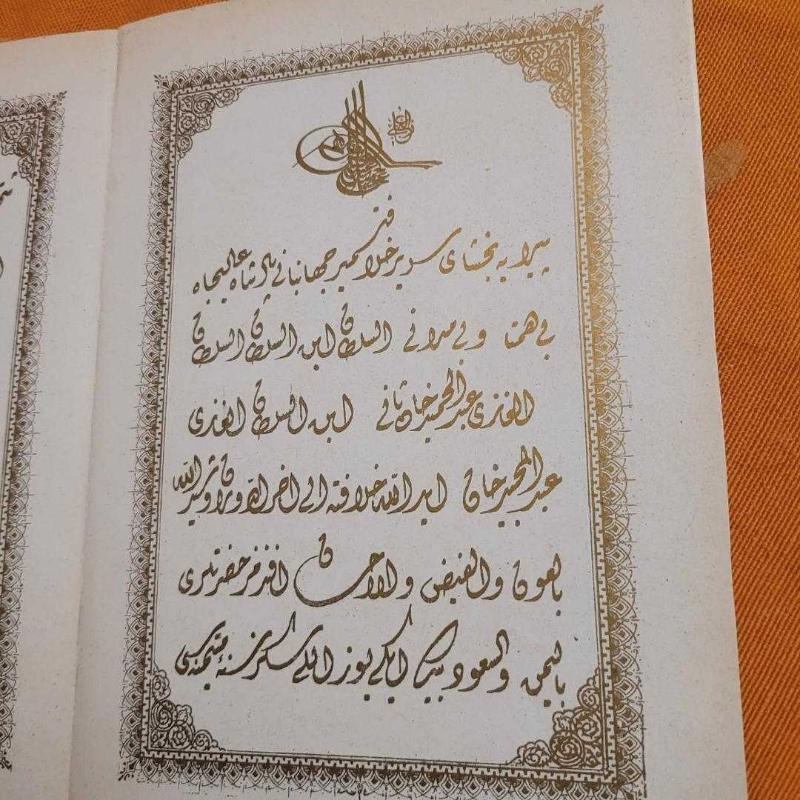 پیرایه بخشای سریر خلافت کبیر جهانبانی پادشاه عالیجاه
بی همتا و بی مدانی السلطان ابن السلطان السلطان
الغازی عبد الحمید خان ثانی ابن السلطان الغازی
عبد المجید خان اید الله خلافته الی اخر الدوران و شید الله
بالعون والفیض والاحسان افندمز حضرتلری
بالیمن والسعود بیك ایکی یوز اللی سکز سنهٔ